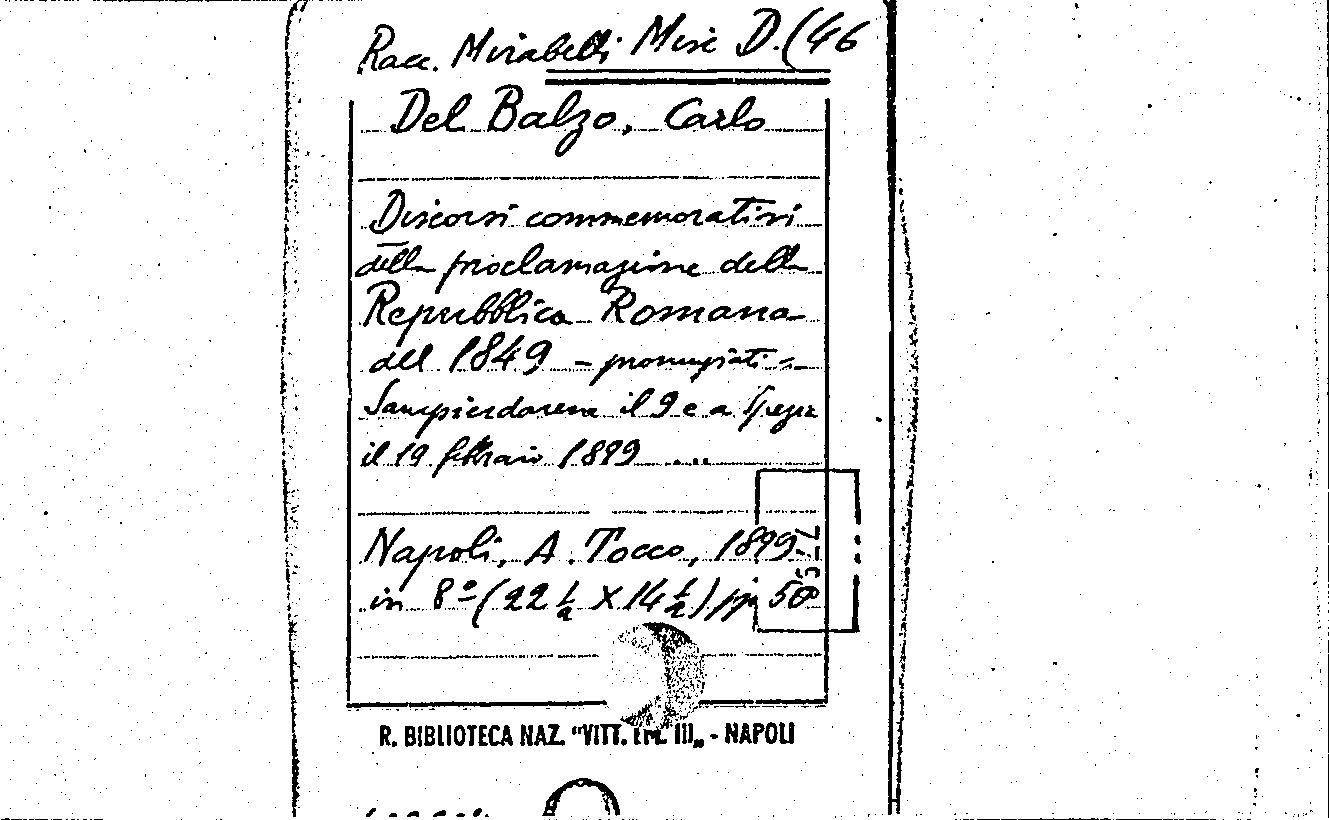 Racc. Mirabelli Misc D. (46
Del Balzo, Carlo
Discorsi commemorativi
della proclamazione della
Repubblica Romana
del 1849 - pronunziati a
Sampierdarena il 9 e a
il 19 febbraio 1899 ...
Napoli, A. Tocco, 1899
in 8º (22 ½ X 14 ½) pp 58
R. BIBLIOTECA NAZ. "VITT. EM. III„ - NAPOLI